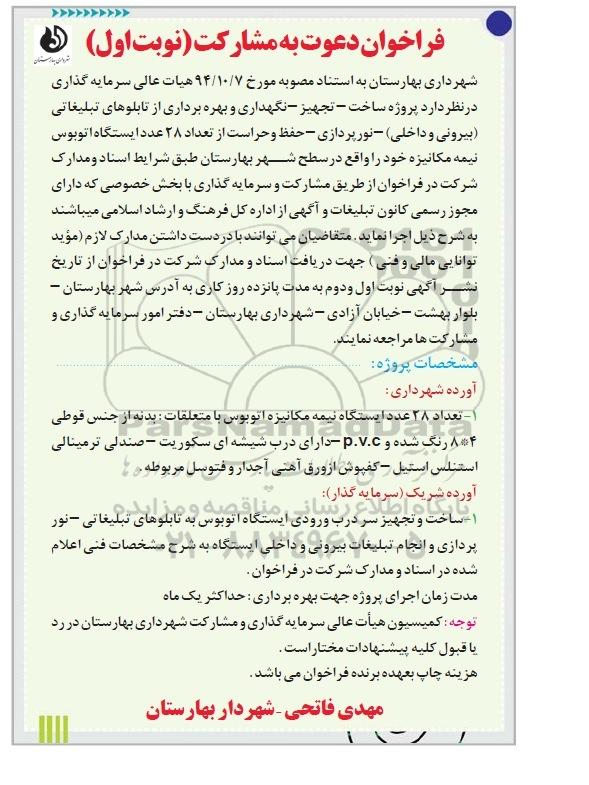 فراخوان دعوت به مشارکت (نوبت اول)
شهرداری بهارستان
شهرداری بهارستان به استناد مصوبه مورخ ۹۴/۱۰/۷ هیات عالی سرمایه گذاری
درنظر دارد پروژه ساخت – تجهیز – نگهداری و بهره برداری از تابلوهای تبلیغاتی
(بیرونی و داخلی) – نورپردازی – حفظ وحراست از تعداد ۲۸ عدد ایستگاه اتوبوس
نیمه مکانیزه خود را واقع در سطح شهر بهارستان طبق شرایط اسناد و مدارک
شرکت در فراخوان از طریق مشارکت و سرمایه گذاری با بخش خصوصی که دارای
مجوز رسمی کانون تبلیغات و آگهی از اداره کل فرهنگ و ارشاد اسلامی میباشند
به شرح ذیل اجرا نماید. متقاضیان می توانند با در دست داشتن مدارک لازم (مؤید
توانایی مالی و فنی ) جهت دریافت اسناد و مدارک شرکت در فراخوان از تاریخ
نشر آگهی نوبت اول ودوم به مدت پانزده روز کاری به آدرس شهر بهارستان –
بلوار بهشت – خیابان آزادی – شهرداری بهارستان – دفتر امور سرمایه گذاری و
مشارکت ها مراجعه نمایند.
مشخصات پروژه :
آورده شهرداری :
۱- تعداد ۲۸ عدد ایستگاه نیمه مکانیزه اتوبوس با متعلقات : بدنه از جنس قوطی
۴*۸ رنگ شده و p.v.c – دارای درب شیشه ای سکوریت – صندلی ترمینالی
استنلس استیل – کفپوش از ورق آهنی آجدار و فتوسل مربوطه .
آورده شریک (سرمایه گذار):
۱- ساخت و تجهیز سر درب ورودی ایستگاه اتوبوس به تابلوهای تبلیغاتی – نور
پردازی و انجام تبلیغات بیرونی و داخلی ایستگاه به شرح مشخصات فنی اعلام
شده در اسناد و مدارک شرکت در فراخوان .
مدت زمان اجرای پروژه جهت بهره برداری : حداکثر یک ماه
توجه : کمیسیون هیأت عالی سرمایه گذاری و مشارکت شهرداری بهارستان در رد
یا قبول کلیه پیشنهادات مختار است .
هزینه چاپ بعهده برنده فراخوان می باشد .
مهدی فاتحی - شهردار بهارستان
ParsNamadData
پایگاه اطلاع رسانی مناقصه و مزایده